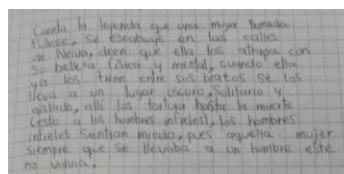 Cuenta la leyenda que una mujer llamada
se escabulle en las calles
de Neiva, dicen que ella los atrapa con
su belleza física y mental, cuando ella
ya los tiene entre sus brazos se los
lleva a un lugar oscuro, solitario y
aislado, allí los tortura hasta la muerte
(esto a los hombres infieles), los hombres
infieles sentían miedo, pues aquella mujer
siempre que se llevaba a un hombre este
no volvía.